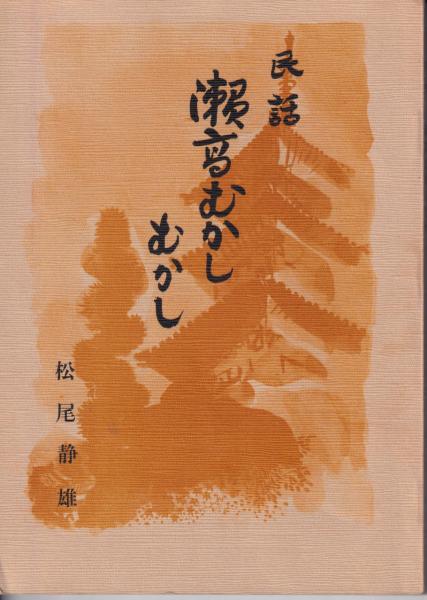 民話
瀬高むかし
むかし
松尾静雄